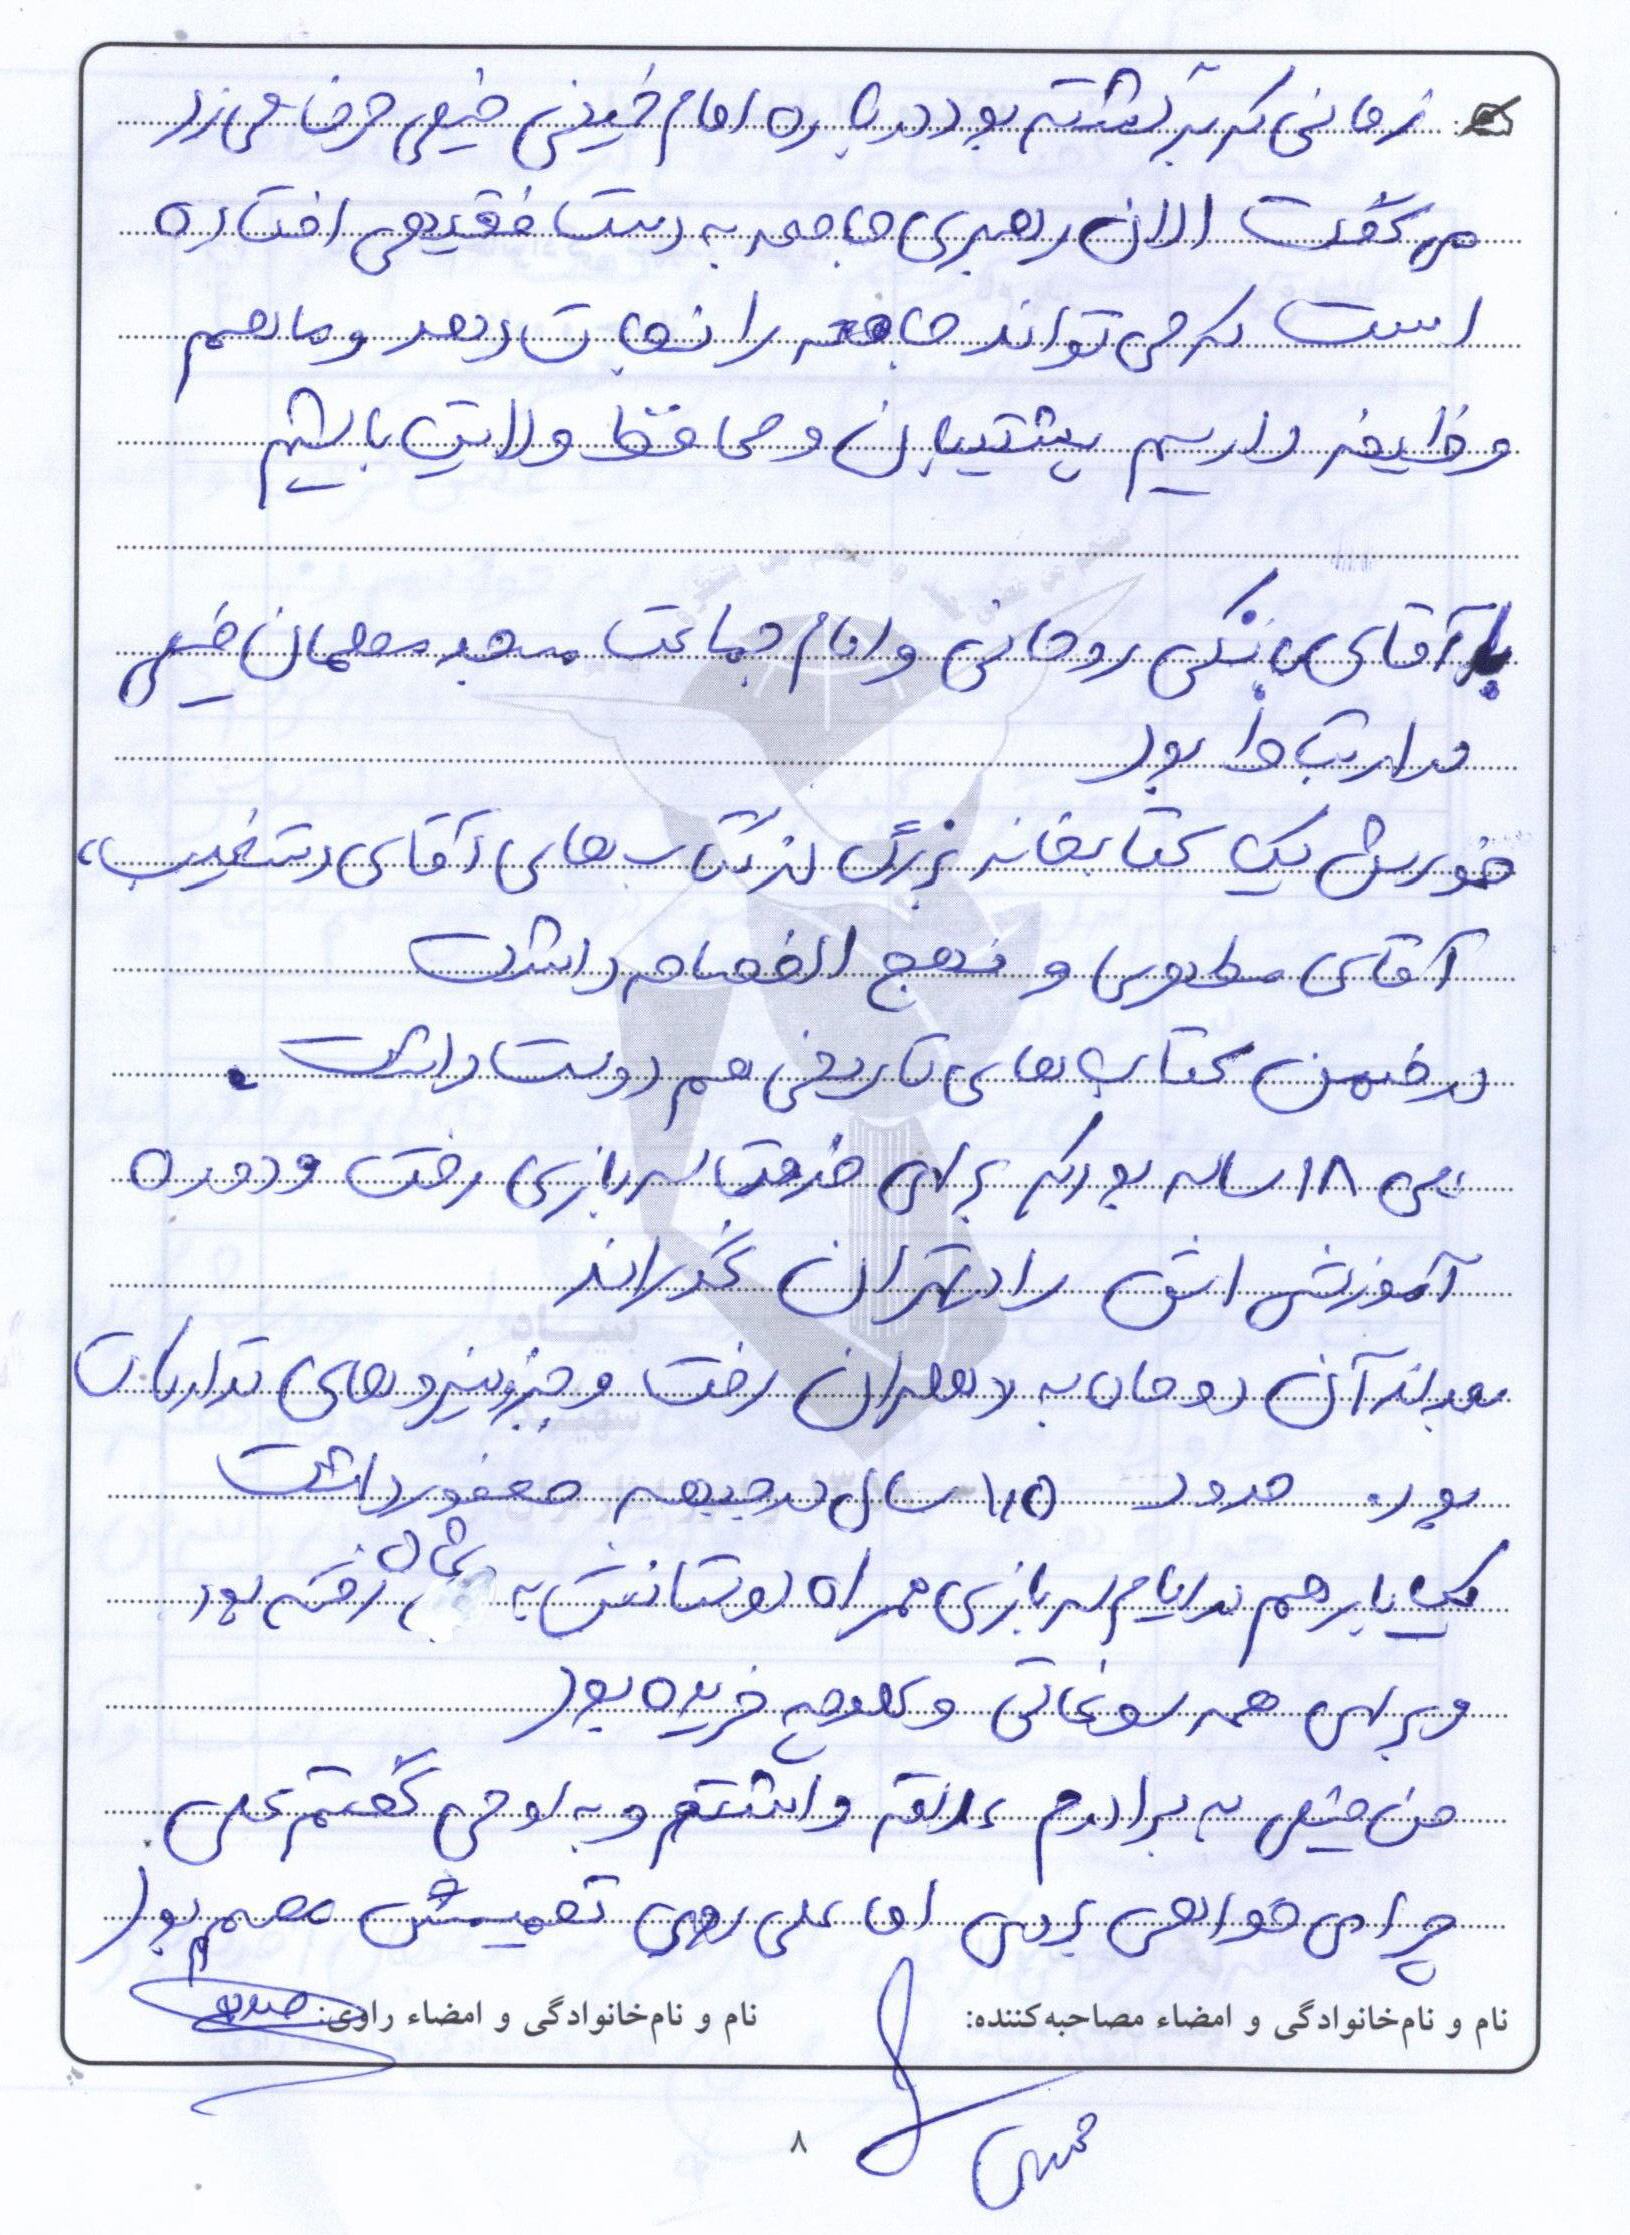 زمانی که برگشته بود درباره امام خمینی خیلی حرف می زد
می گفت الان رهبری جامعه به دست فقیهی افتاده
است که می تواند جامعه را نجات دهد و ما هم
وظیفه داریم پشتیبان و محافظ ولایت باشیم
با آقای روحانی و امام جماعت مسجد سلمان خیلی
در ارتباط بود
خودش یک کتابخانه بزرگ از کتاب های آقای دستغیب،
آقای مطهری و نهج الفصاحه داشت
در ضمن کتاب های تاریخی هم دوست داشت.
۱۸ ساله بود که برای خدمت سربازی رفت و دوره
آموزشی اش را در تهران گذراند
بعد از آن دو ماه به دهلران رفت و جزو نیروهای تدارکات
بود. حدود ۱،۵ سال در جبهه حضور داشت
یک بار هم در ایام سربازی همراه دوستانش به شمال رفته بود
و برای همه سوغاتی و کلوچه خریده بود
من خیلی به برادرم علاقه داشتم و به او می گفتم علی
چرا می خواهی بروی اما علی روی تصمیمش مصمم بود
نام و نام‌خانوادگی و امضاء مصاحبه‌کننده: نام و نام‌خانوادگی و امضاء راوی:
۸